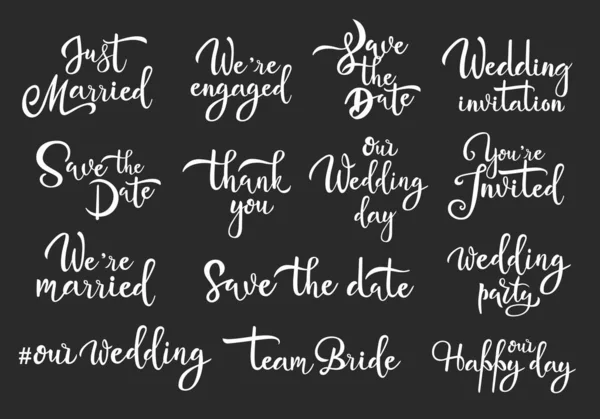 Just
Married
We're
engaged
Save
the
Date
Wedding
invitation
Save the
Date
thank
you
our
Wedding
day
You're
Invited
We're
married
Save the date
wedding
party
#our wedding
Team Bride
our
Happy day